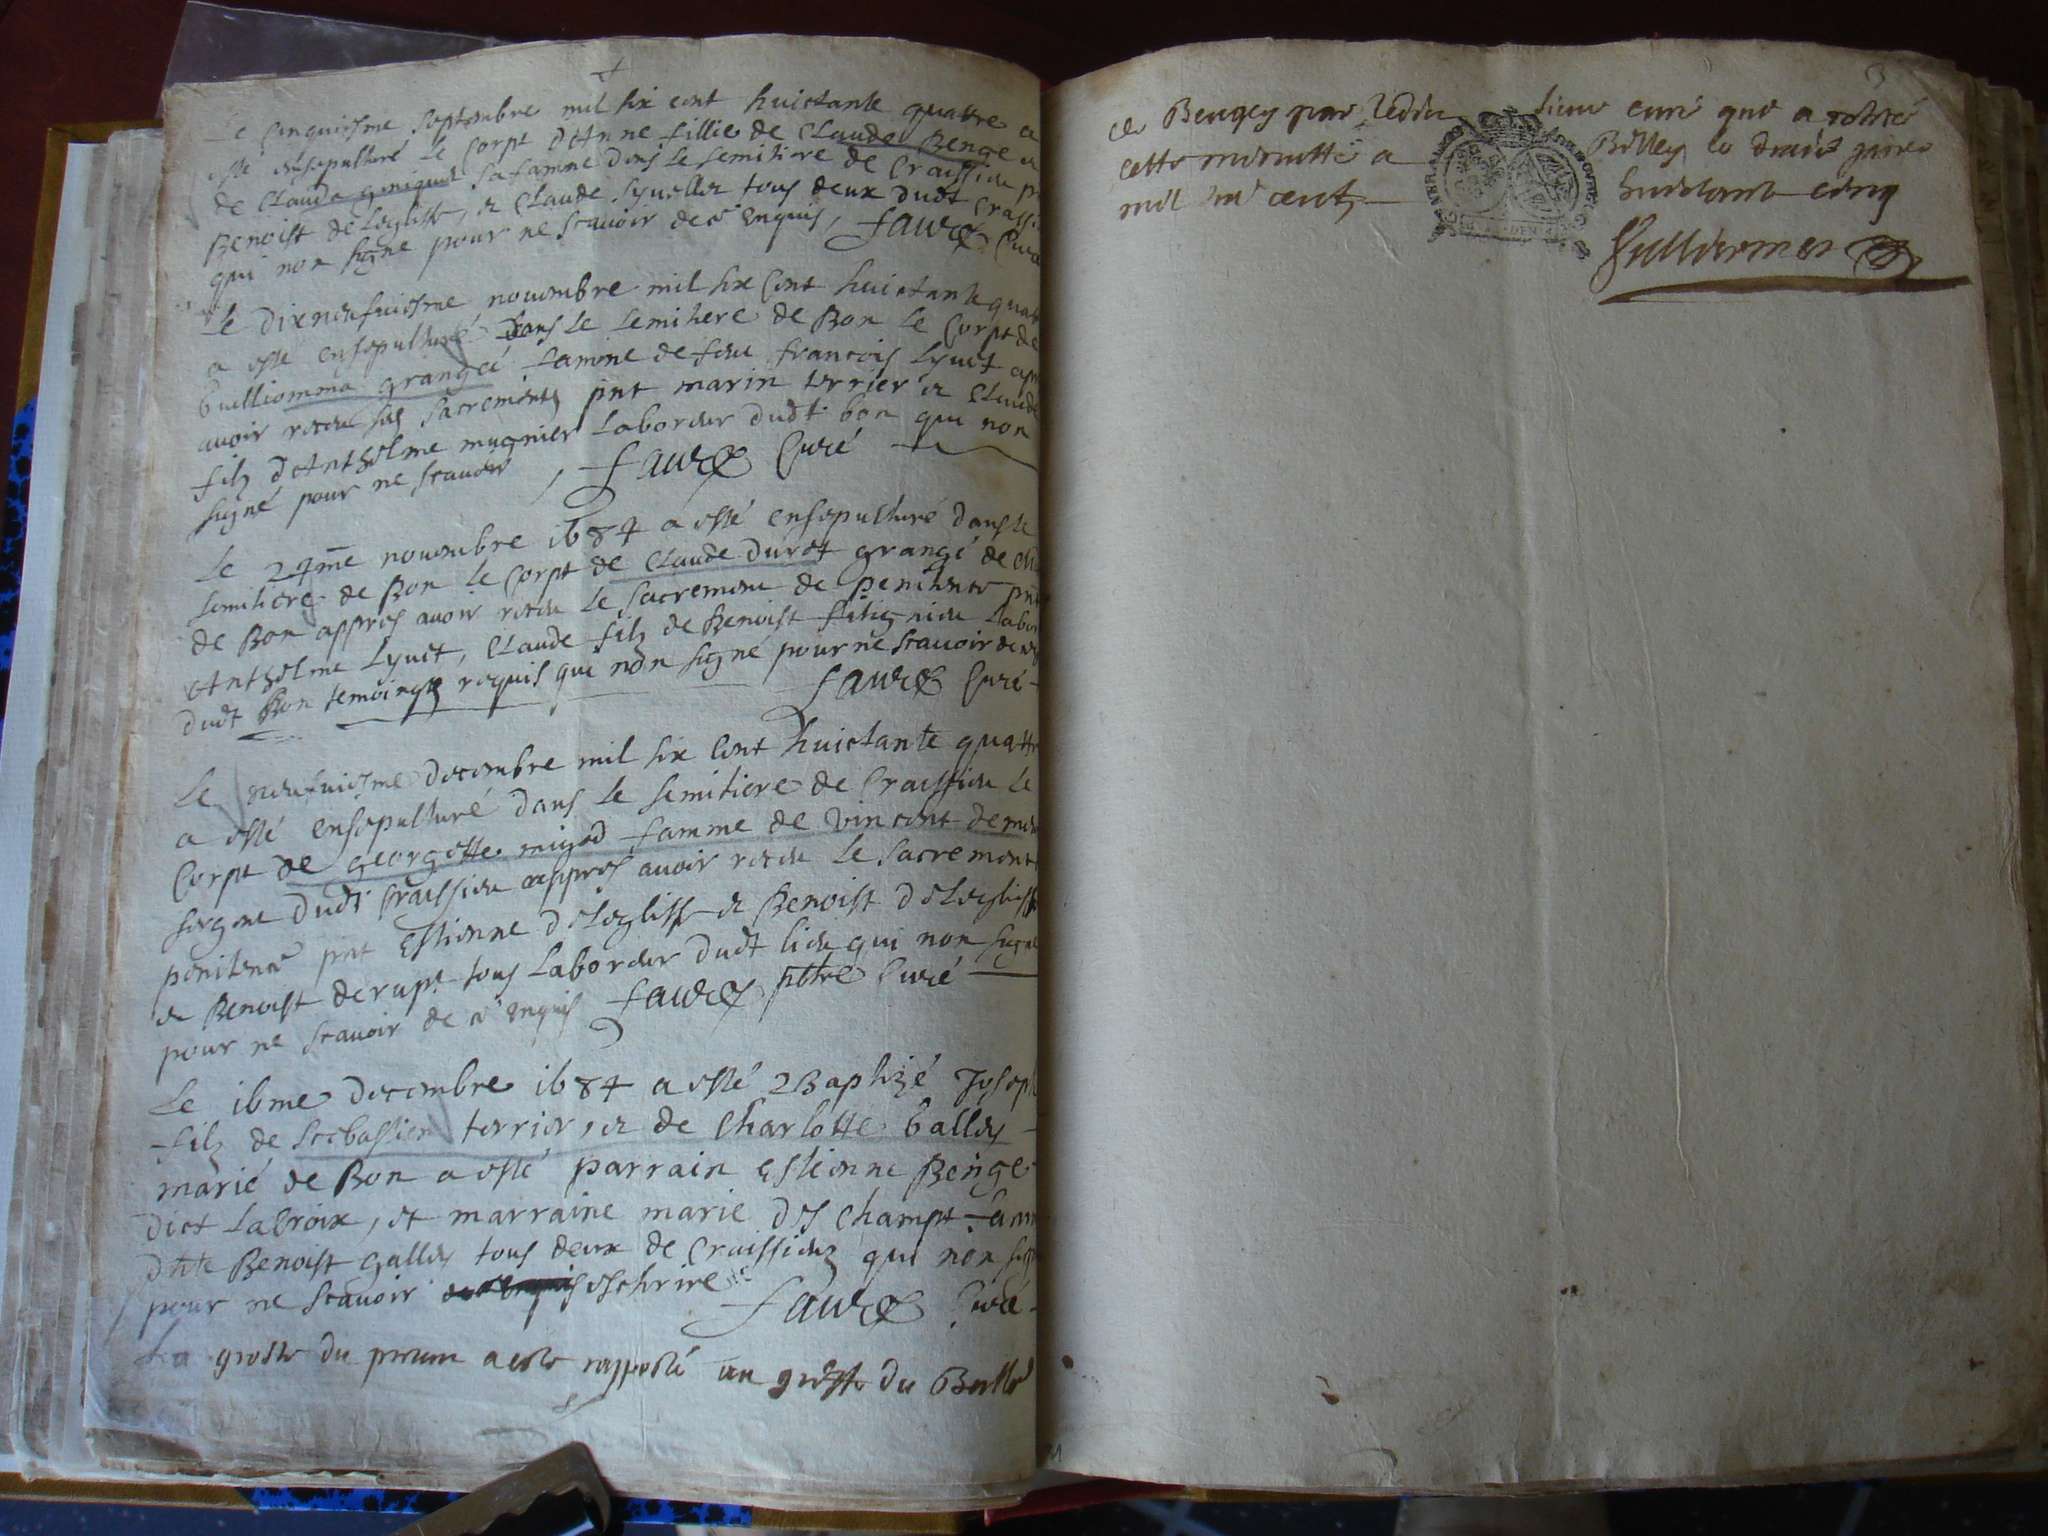 Le Cinquiesme septembre mil six cent huictante quattre a
esté ensepulturé Le Corpt d'Anne fillie de Claude Benge et
de Clauda sa famme dans le semitiere de Craissieu
Benoist de Leglise, et Claude tous deux dudt Crassi
qui non signe pour ne scavoir de ce enquis, Favre Curé
Le dixneufuiesme novembre mil six Cent huictante quatt
a esté ensepulturé dans le semitiere de Bon Le Corpt de
Guilliomma grangé famme de feu francois Lyvet apr
avoir receu ses sacrements pnt marin terrier et Claude
filz d'Anthelme mugnier Laboreur dudt bon qui non
signé pour ne scavoir, Favre Curé
Le 24me novembre 1684 a esté ensepulturé dans le
semitiere de Bon le Corpt de Claude duret grangé de
de Bon appres avoir receu Le sacrement de penitence pnt
Anthelme Lyvet, Claude filz de Benoist Labor
dudt Bon temoingtz requis qui non signé pour ne scavoir de
Favre Curé
Le neufuiesme decembre mil six Cent huictante quattre
a esté ensepulturé dans le semitiere de Craissieu Le
Corpt de georgette famme de vincent
dudt Craissieu appres avoir receu Le sacrement
penitence pnt Estienne deLeglise et Benoist deLeglise
et Benoist derupt tous Laboreur dudt lieu qui non signé
pour ne scavoir de ce enquis Favre pbtre Curé
Le 16me decembre 1684 a esté Baptizé Joseph
filz de Scebastien terrier, et de Charlotte ballet
marié de Bon a esté parrain Estienne Benge
dict Lacroix, et marraine marie des champt fam
Benoist gallet tous deux de Craissieu qui non sig
pour ne scavoir eschrire
Favre Curé
La grosse du pnt a esté rapporté au greffe du
ce Beugey par Ledit sieur curé que a retiré
cette minutte a Belley le janvier
mil six cent huictante cinq